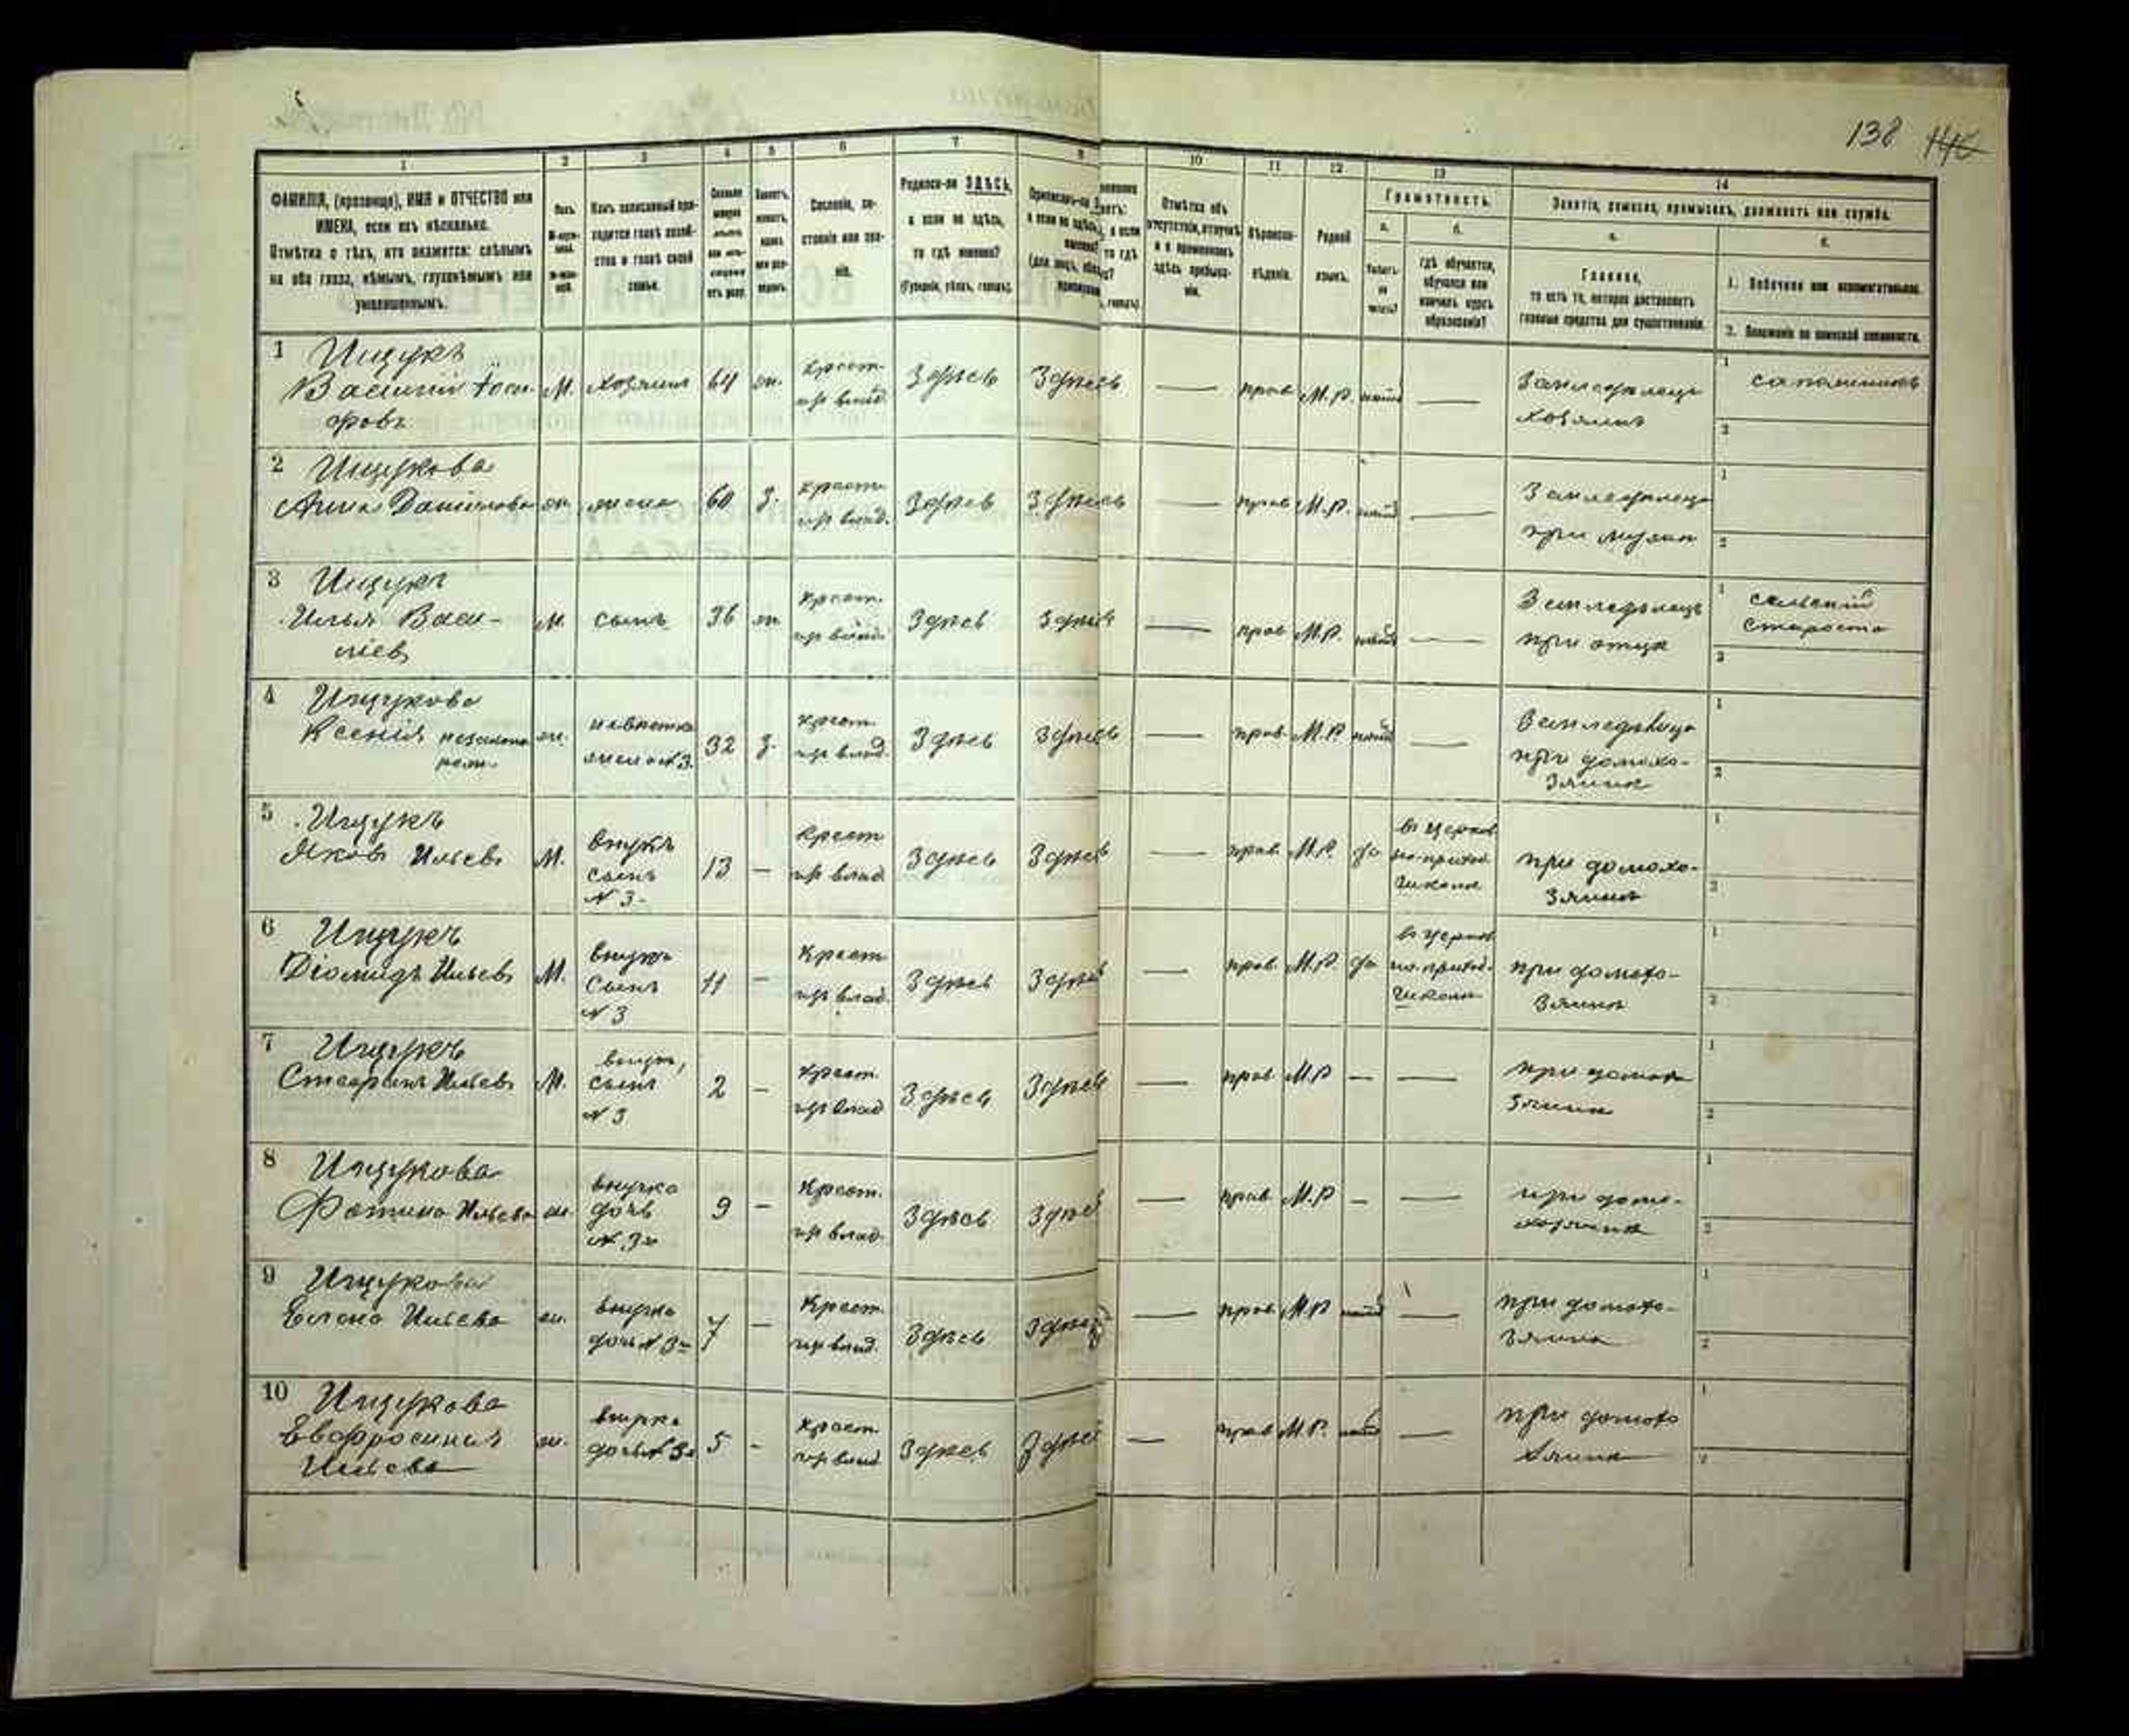 138 140
1 2 3 4 5 6 7 8 10 11 12 13 14
ФАМИЛІЯ, (прозвище), ИМЯ и ОТЧЕСТВО или
ИМЕНА, если ихъ нѣсколько.
Отмѣтка о тѣхъ, кто окажется: слѣпымъ
на оба глаза, нѣмымъ, глухонѣмымъ или
умалишеннымъ.
Сословіе, со-
стояніе или зва-
ніе.
Родился-ли ЗДѢСЬ,
а если не здѣсь,
то гдѣ именно?
(Губернія, уѣздъ, городъ).
Отмѣтка объ
отсутствіи, отлучкѣ
и о временномъ
здѣсь пребыва-
ніи.
Вѣроиспо-
вѣданіе.
Родной
языкъ.
Грамотность.
а.
б.
гдѣ обучается,
обучался или
кончилъ курсъ
образованія?
Занятіе, ремесло, промыселъ, должность или служба.
а.
Главное,
то есть то, которое доставляетъ
главныя средства для существованія.
б.
1. Побочное или вспомогательное.
2. Положеніе по воинской повинности.
1 Ищукъ
Василій
М. хозяинъ 64 ж. крест. Здѣсь Здѣсь — прав. М.Р. нѣтъ —
изъ влад.
Земледѣлецъ
хозяинъ
сапожникъ
2 Ищукова
Анна Даніилова ж. жена 60 з. крест. Здѣсь Здѣсь — прав М.Р. нѣтъ —
изъ влад.
при мужѣ
3 Ищукъ
Илья Васи-
ліевъ
М. сынъ 36 ж. крест. Здѣсь Здѣсь — прав М.Р. нѣтъ —
изъ влад.
Земледѣлецъ
при отцѣ
сельскій
староста
4 Ищукова
Ксенія незаконо
рожд.
ж. невѣстка
жена № 3. 32 з. крест. Здѣсь Здѣсь — прав. М.Р нѣтъ —
изъ влад.
при домохо-
зяинѣ
5 Ищукъ
Яковъ Ильевъ М. внукъ
сынъ
№ 3. 13 — крест
изъ влад Здѣсь Здѣсь — прав. М.Р. да
въ церков
но-приход.
школѣ
при домохо-
зяинѣ
6 Ищукъ
Діомидъ Ильевъ М. внукъ
сынъ
№ 3 11 — крест
изъ влад. Здѣсь Здѣсь — прав. М.Р. да
въ церков
но-приход.
школѣ
при домохо-
зяинѣ
7 Ищукъ
Стефанъ Ильевъ М. внукъ,
сынъ
№ 3 2 — крест.
изъ влад Здѣсь Здѣсь — прав. М.Р — —
при домохо
зяинѣ
8 Ищукова
Фотина Ильева ж. внучка
дочь
№ 3 9 — крест.
изъ влад. Здѣсь Здѣсь — прав. М.Р — —
при домо-
хозяинѣ
9 Ищукова
Елена Ильева ж. внучка
дочь № 3 7 — Крест.
изъ влад. Здѣсь Здѣсь — прав. М.Р нѣтъ —
при домохо-
зяинѣ
10 Ищукова
Евфросинія
Ильева
ж. внучка
дочь № 3 5 - крест.
изъ влад Здѣсь Здѣсь — прав М.Р. нѣтъ —
при домохо
зяинѣ